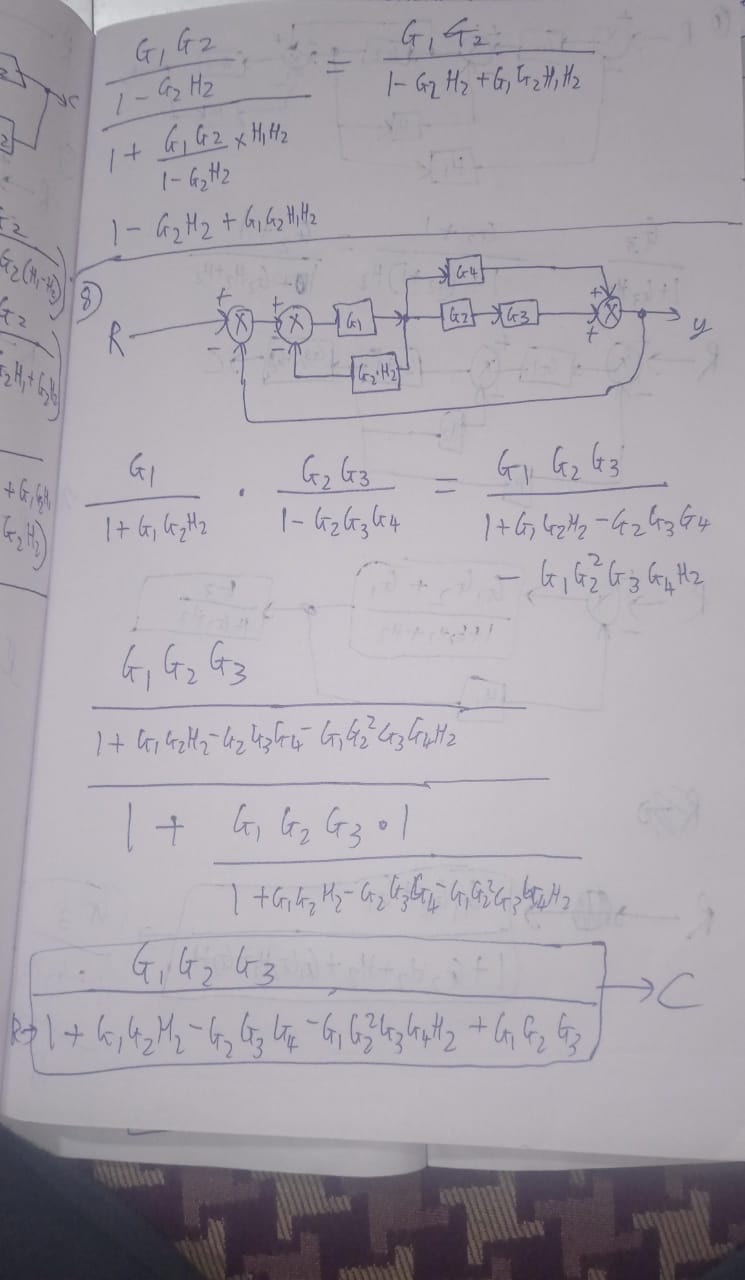 G₁ G₂
1 - G₂ H₂
1 + G₁ G₂ × H₁H₂
1 - G₂H₂
= G₁ G₂
1 - G₂ H₂ + G₁ G₂ H₁ H₂
1 - G₂ H₂ + G₁ G₂ H₁ H₂
8)
R + - X + - X G₁ G₂ G₃ G₄ + + X y
G₂·H₂
G₁ / 1 + G₁ G₂H₂ · G₂ G₃ / 1 - G₂G₃G₄ = G₁ G₂ G₃ / 1 + G₁ G₂H₂ - G₂ G₃ G₄
- G₁ G₂² G₃ G₄ H₂
G₁ G₂ G₃
1 + G₁ G₂ H₂ - G₂ G₃ G₄ - G₁ G₂² G₃ G₄ H₂
1 + G₁ G₂ G₃ · 1
1 + G₁ G₂ H₂ - G₂ G₃ G₄ - G₁ G₂² G₃ G₄ H₂
G₁ G₂ G₃
R→ 1 + G₁ G₂ H₂ - G₂ G₃ G₄ - G₁ G₂² G₃ G₄ H₂ + G₁ G₂ G₃ → C